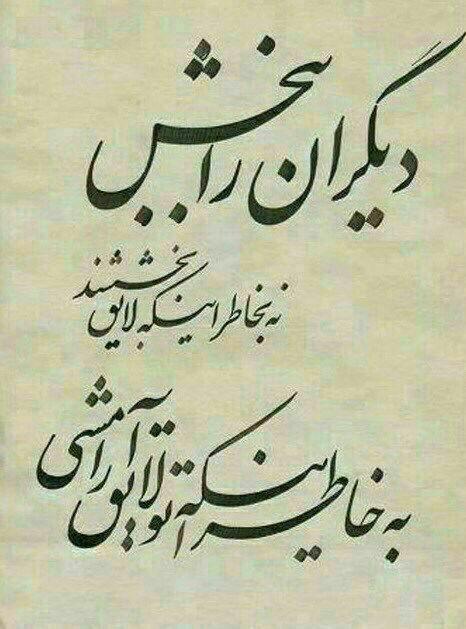 دیگران را ببخش
نه بخاطر اینکه لایق بخششند
به خاطر اینکه تو لایق آرامشی